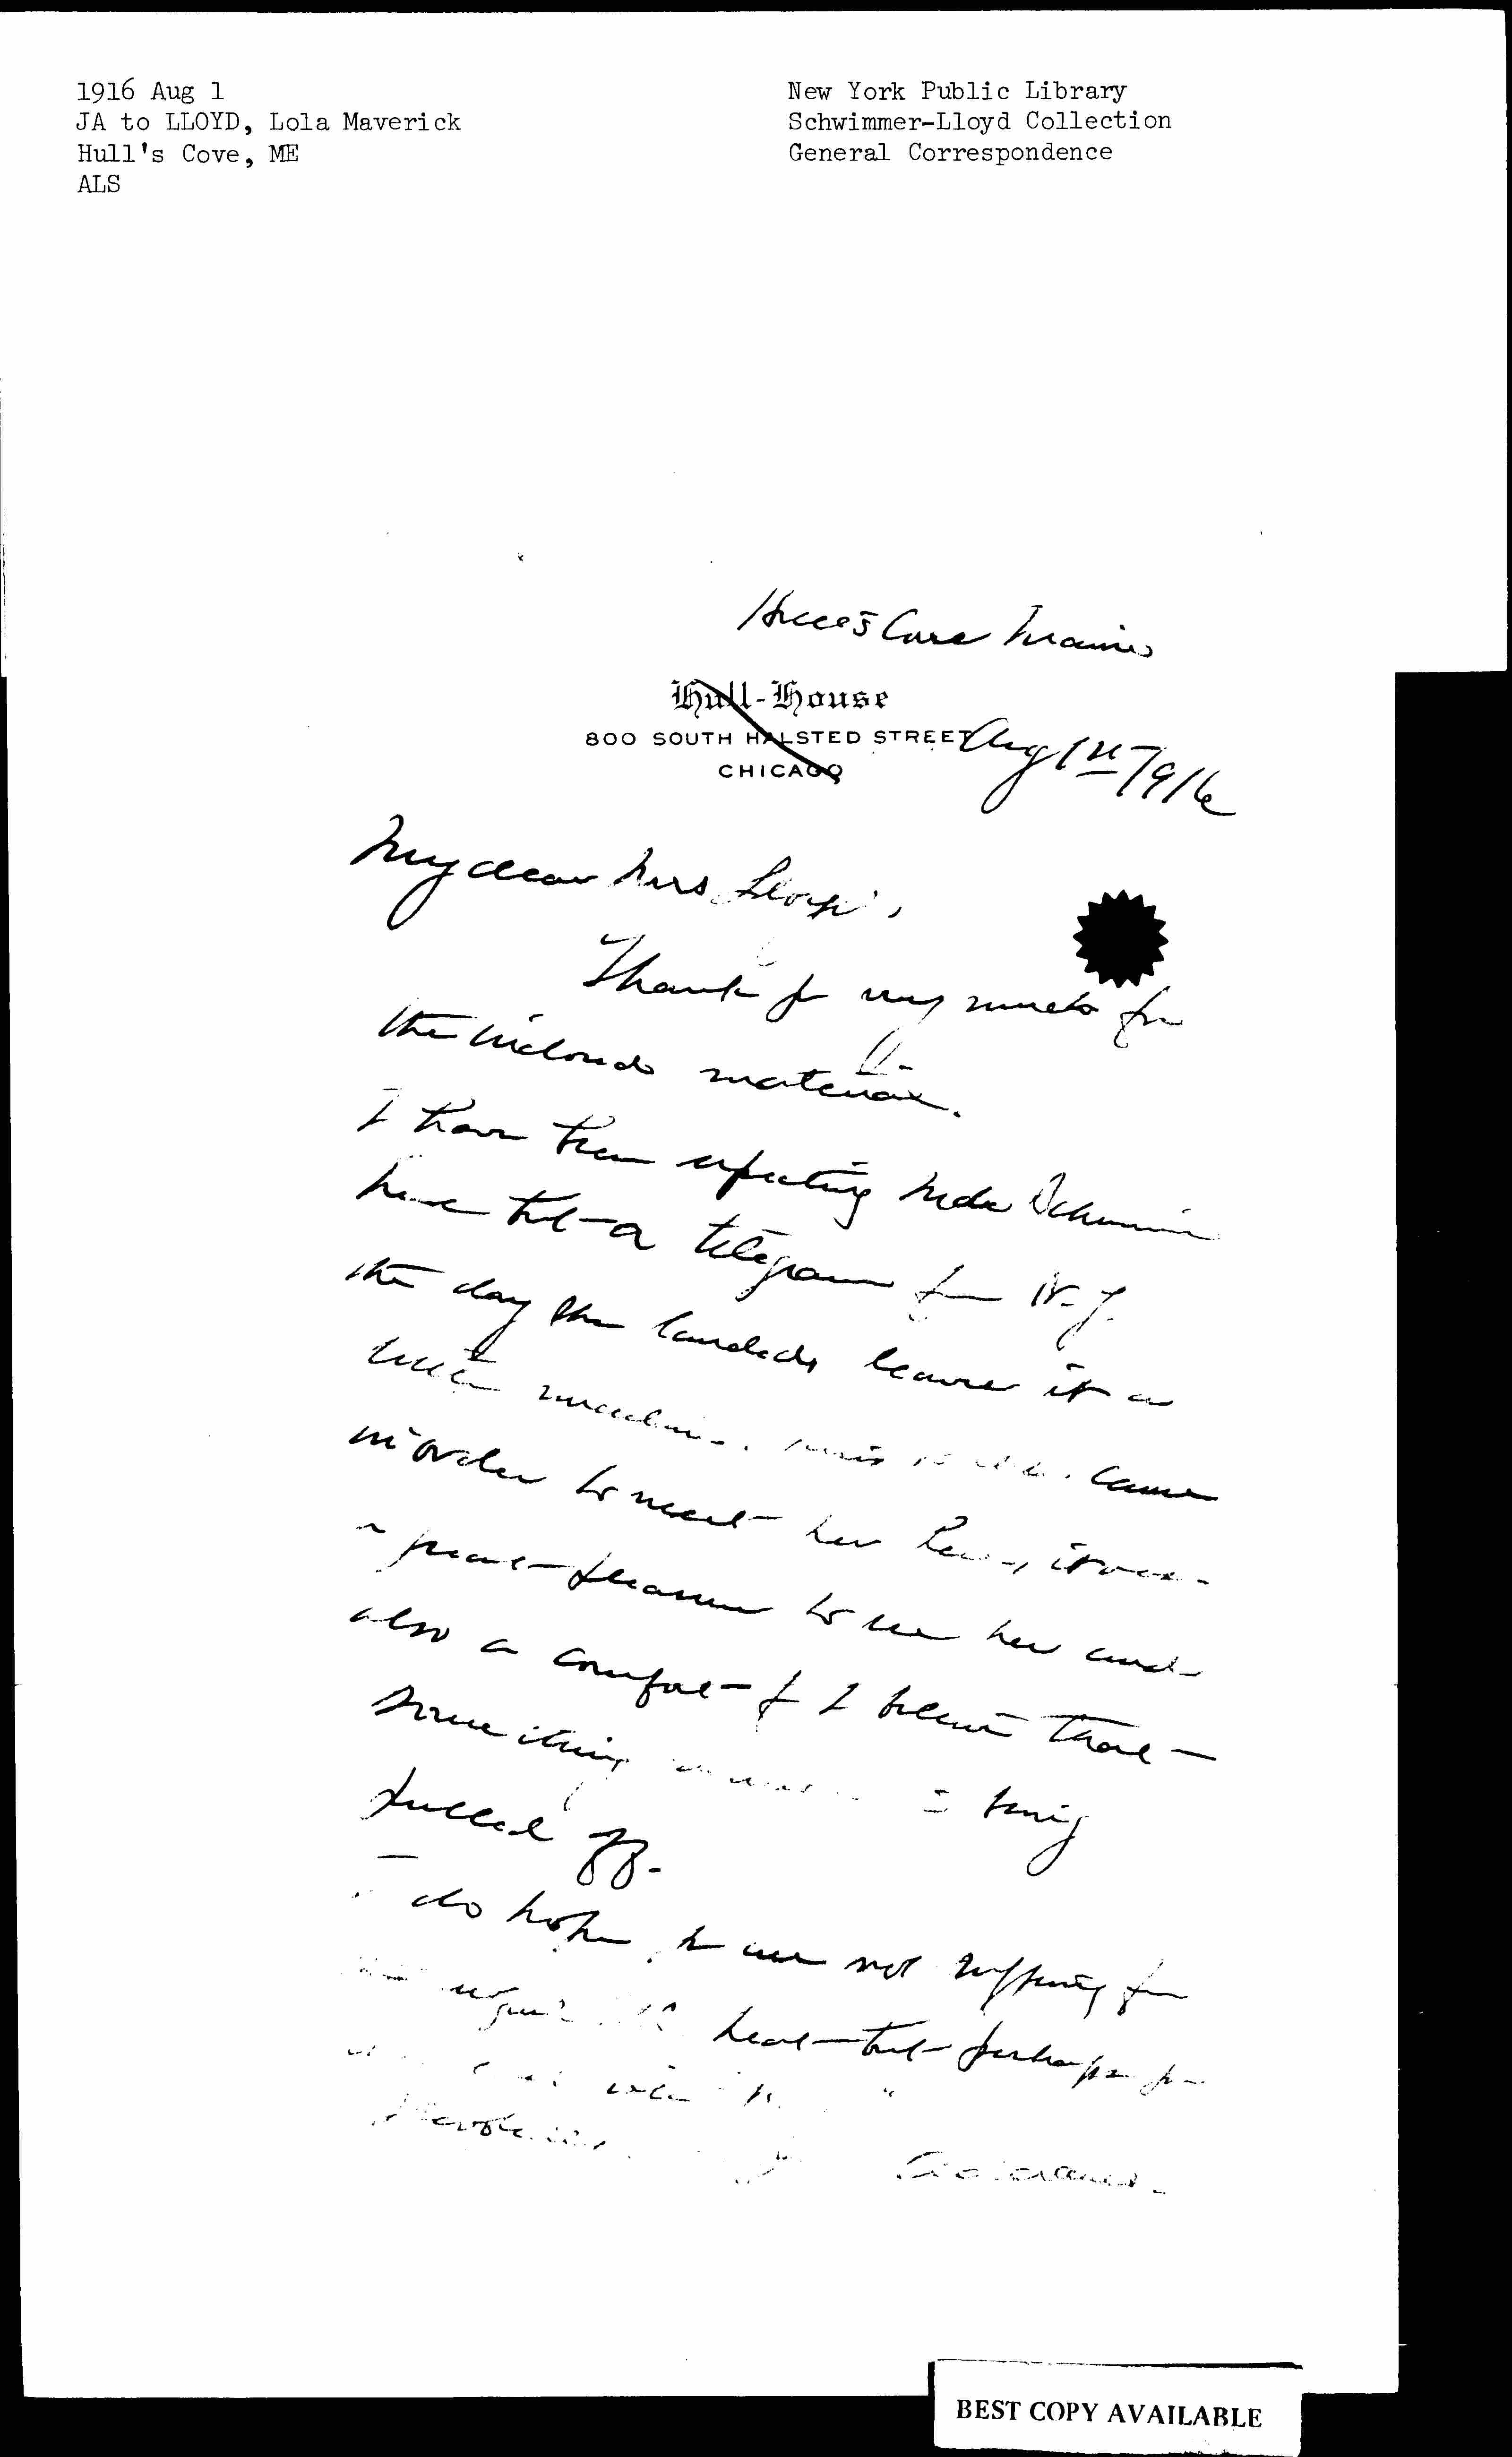 1916 Aug 1
JA to LLOYD, Lola Maverick
Hull's Cove, ME
ALS
New York Public Library
Schwimmer-Lloyd Collection
General Correspondence
Hull's Cove Maine
Hull-House
800 SOUTH HALSTED STREET
CHICAGO
Aug 1st 1916
My dear Mrs Lloyd,
Thank you very much for
the inclosed material.
I have been expecting Mde Schwimmer
here but a telegram from N.Y.
the day she landed leaves it a
little uncertain. came
in order to meet her here, it was
a great pleasure to see her and
also a comfort for I believe that
something is being
pulled off.
I do hope you are not suffering from
heat but perhaps you